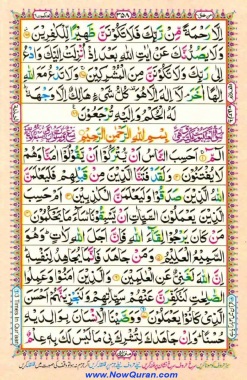 إِلَّا رَحْمَةً مِّنْ رَّبِّكَ فَلَا تَكُوْنَنَّ ظَهِيْرًا لِّلْكٰفِرِيْنَ
وَلَا يَصُدُّنَّكَ عَنْ اٰيٰتِ اللّٰهِ بَعْدَ اِذْ اُنْزِلَتْ اِلَيْكَ وَادْعُ
اِلٰى رَبِّكَ وَلَا تَكُوْنَنَّ مِنَ الْمُشْرِكِيْنَ وَلَا تَدْعُ مَعَ اللّٰهِ
اِلٰهًا اٰخَرَ لَآ اِلٰهَ اِلَّا هُوَ كُلُّ شَيْءٍ هَالِكٌ اِلَّا وَجْهَهٗ
لَهُ الْحُكْمُ وَاِلَيْهِ تُرْجَعُوْنَ
بِسْمِ اللّٰهِ الرَّحْمٰنِ الرَّحِيْمِ
الٓمّٓ اَحَسِبَ النَّاسُ اَنْ يُّتْرَكُوْٓا اَنْ يَّقُوْلُوْٓا اٰمَنَّا وَهُمْ
لَا يُفْتَنُوْنَ وَلَقَدْ فَتَنَّا الَّذِيْنَ مِنْ قَبْلِهِمْ فَلَيَعْلَمَنَّ
اللّٰهُ الَّذِيْنَ صَدَقُوْا وَلَيَعْلَمَنَّ الْكٰذِبِيْنَ اَمْ حَسِبَ
الَّذِيْنَ يَعْمَلُوْنَ السَّيِّاٰتِ اَنْ يَّسْبِقُوْنَا سَآءَ مَا يَحْكُمُوْنَ
مَنْ كَانَ يَرْجُوْا لِقَآءَ اللّٰهِ فَاِنَّ اَجَلَ اللّٰهِ لَاٰتٍ وَهُوَ
السَّمِيْعُ الْعَلِيْمُ وَمَنْ جَاهَدَ فَاِنَّمَا يُجَاهِدُ لِنَفْسِهٖ
اِنَّ اللّٰهَ لَغَنِيٌّ عَنِ الْعٰلَمِيْنَ وَالَّذِيْنَ اٰمَنُوْا وَعَمِلُوا
الصّٰلِحٰتِ لَنُكَفِّرَنَّ عَنْهُمْ سَيِّاٰتِهِمْ وَلَنَجْزِيَنَّهُمْ اَحْسَنَ
الَّذِيْ كَانُوْا يَعْمَلُوْنَ وَوَصَّيْنَا الْاِنْسَانَ بِوَالِدَيْهِ
حُسْنًا وَاِنْ جَاهَدٰكَ لِتُشْرِكَ بِيْ مَا لَيْسَ لَكَ بِهٖ
www.NowQuran.com